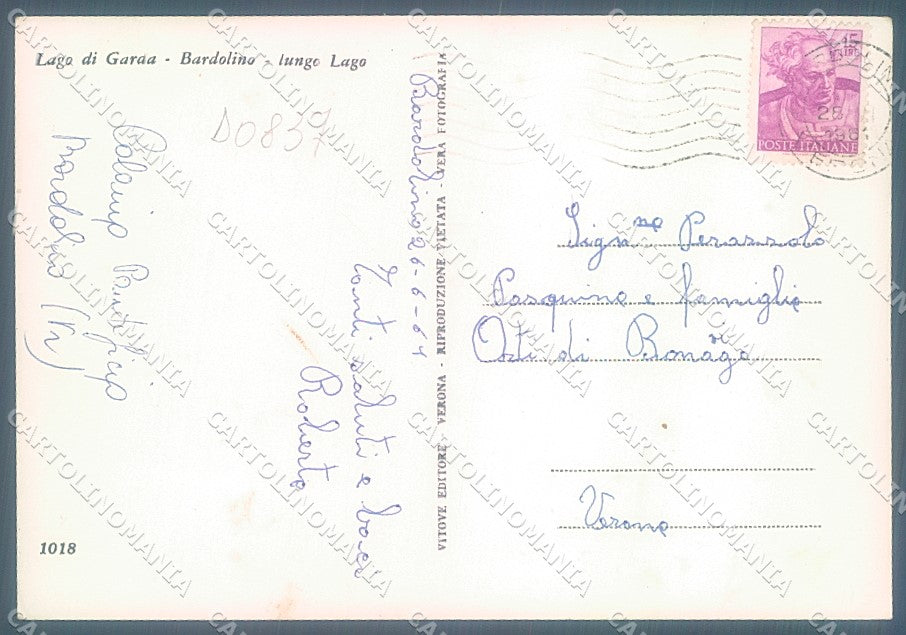 Lago di Garda - Bardolino - lungo Lago
D0857
Colonia Pontificia
Bardolino (Vr)
Bardolino 26-6-61
Tanti saluti e baci
Roberto
VITOVE EDITORE - VERONA - RIPRODUZIONE VIETATA - VERA FOTOGRAFIA
15
LIRE
POSTE ITALIANE
28
1961
Sign.na Perazzolo
Pasquina e famiglia
Verona
1018
CARTOLINOMANIA